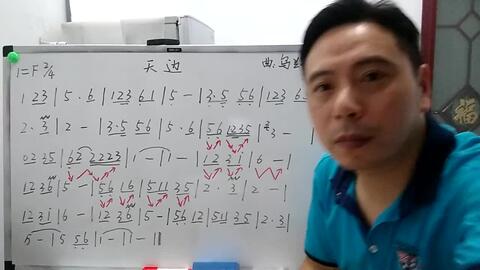 1=F 2/4 天边 曲:乌
1 23 | 5 · 6 | 123 61 | 5 - | 3·5 56 | 123 6
2 · 3 | 2 - | 3·5 56 | 5 · 6 | 56 1235 | 23 - |
0235 | 62 2223 | 1 - | 1 - | 123i | 6 - |
1236 | 5 - | 56 16 | 511 35 | 2 · 3 | 2 - |
123i | 6 - | 1236 | 5 - | 56 12 | 511 35 | 2·3 |
5 - | 5 56 | 1 - | 1 - ||
福